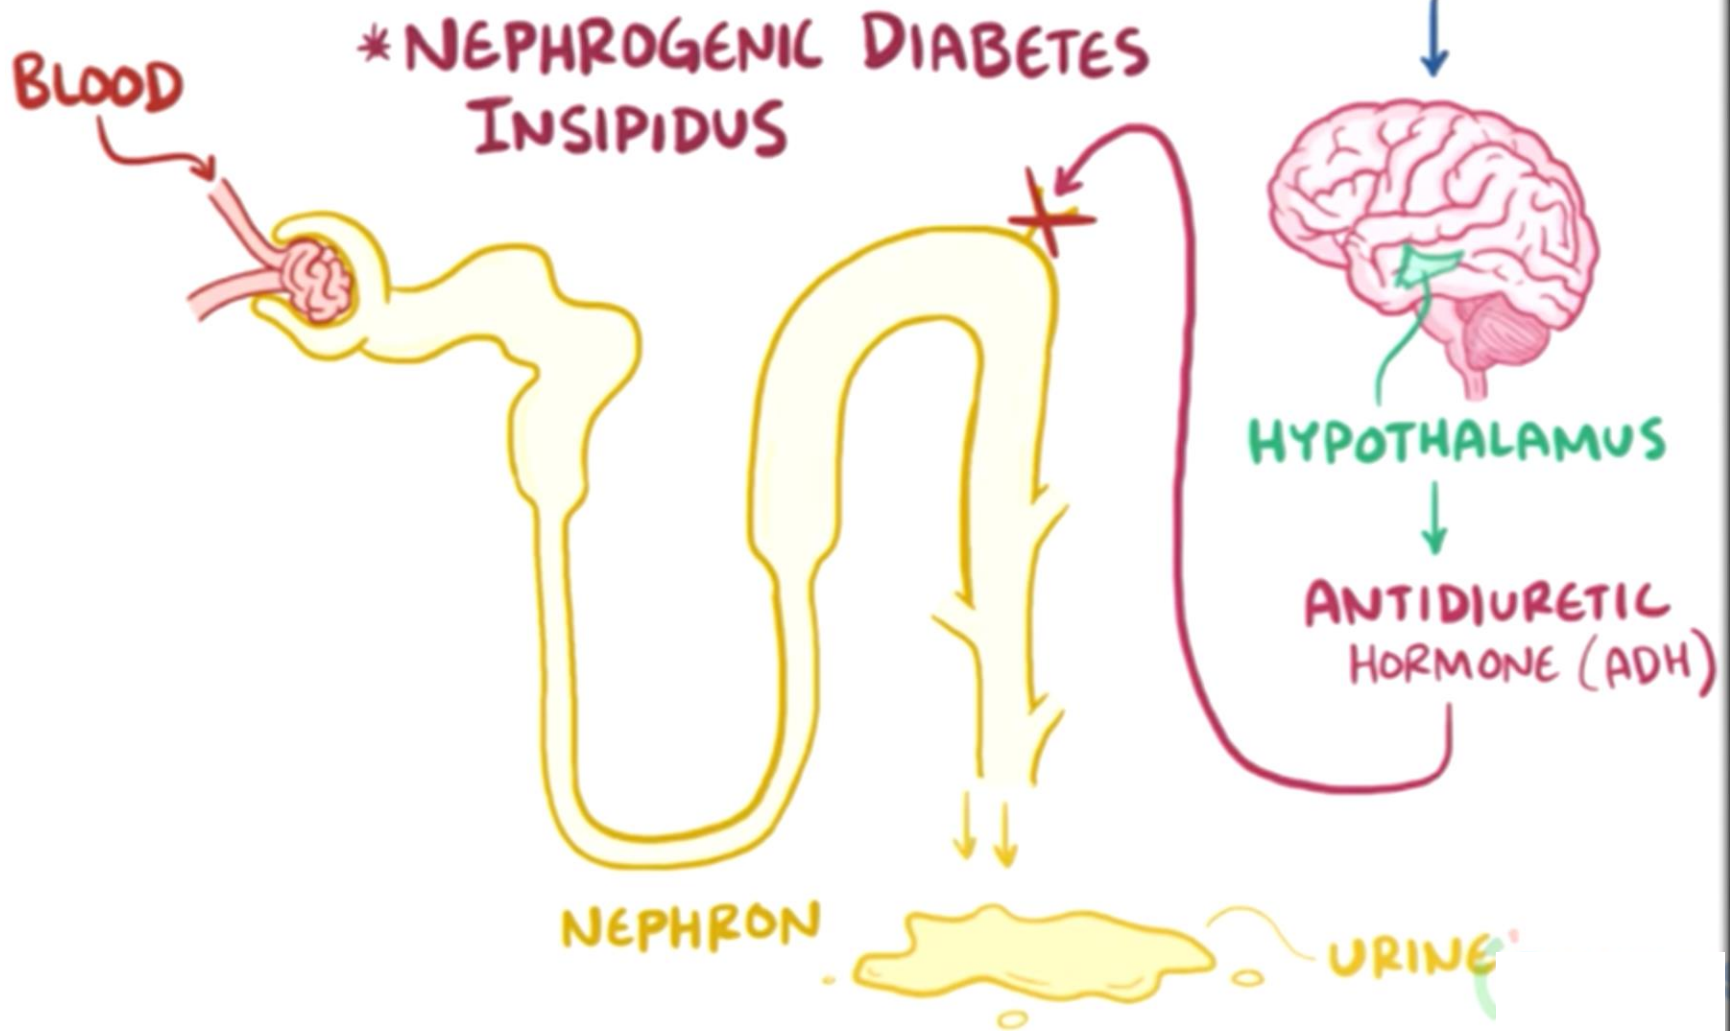 *NEPHROGENIC DIABETES
INSIPIDUS
BLOOD
HYPOTHALAMUS
ANTIDIURETIC
HORMONE (ADH)
NEPHRON
URINE